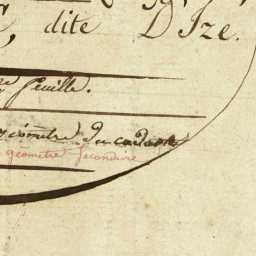 , dite D'Ize.
feuille.
géomètre du cadastre
géomètre secondaire